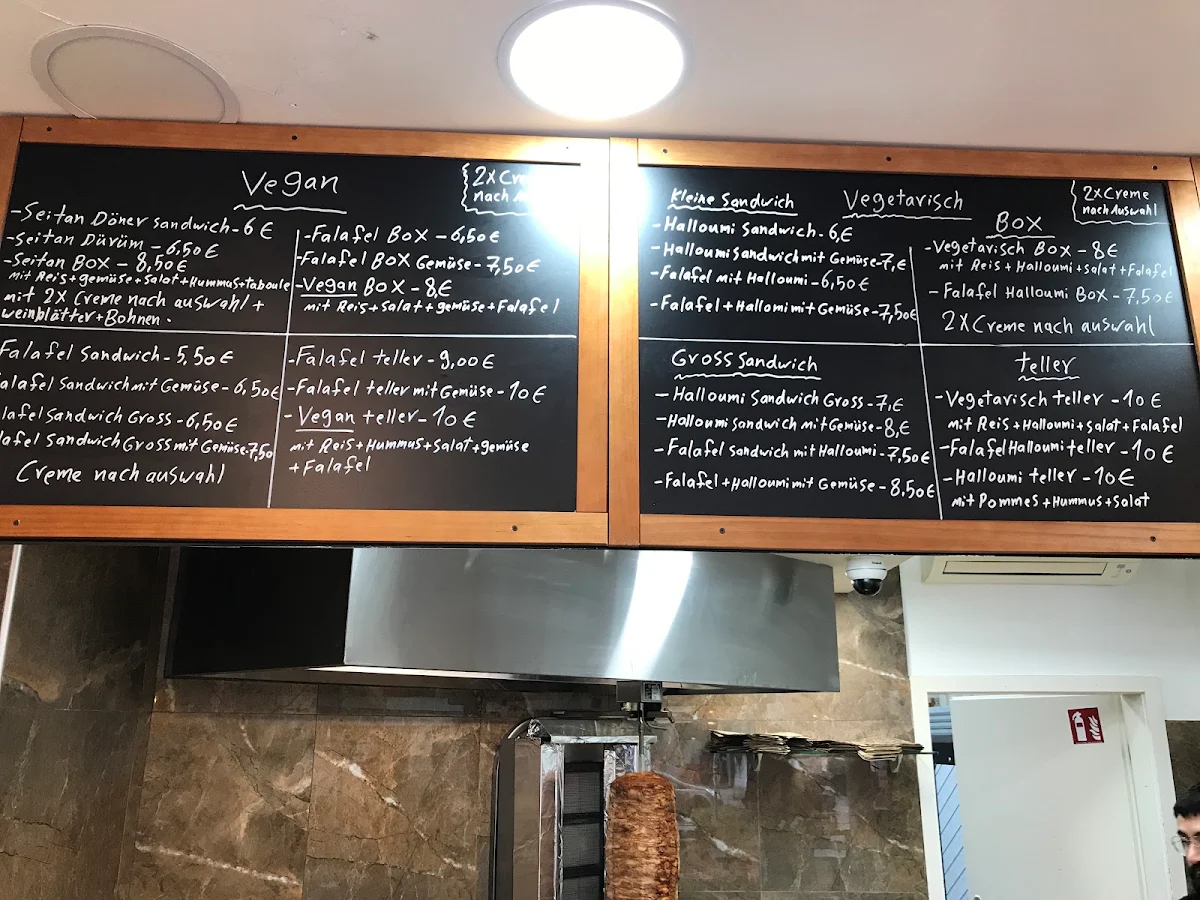 Vegan
2X Cre
nach A
-Seitan Döner sandwich-6€
-Seitan Dürüm-6,50€
-Seitan BOX-8,50€
mit Reis+gemüse+Salat+Hummus+taboule
mit 2X Creme nach auswahl+
weinblätter+Bohnen.
-Falafel BOX-6,50€
-Falafel BOX Gemüse-7,50€
-Vegan BOX-8€
mit Reis+Salat+gemüse+Falafel
Falafel Sandwich-5,50€
alafel Sandwich mit Gemüse-6,50€
lafel Sandwich Gross-6,50€
lafel Sandwich Gross mit Gemüse-7,50
Creme nach auswahl
-Falafel teller-9,00€
-Falafel teller mit Gemüse-10€
-Vegan teller-10€
mit Reis+Hummus+Salat+gemüse
+Falafel
Vegetarisch
2X Creme
nach Auswahl
Kleine Sandwich
-Halloumi Sandwich-6,€
-Halloumi Sandwich mit Gemüse-7,€
-Falafel mit Halloumi-6,50€
-Falafel+Hallomi mit Gemüse-7,50€
BOX
-Vegetarisch BOX-8€
mit Reis+Halloumi+Salat+Falafel
-Falafel Halloumi BOX-7,50€
2X Creme nach auswahl
Gross Sandwich
-Halloumi Sandwich Gross-7,€
-Halloumi Sandwich mit Gemüse-8,€
-Falafel Sandwich mit Halloumi-7,50€
-Falafel+Halloumi mit Gemüse-8,50€
teller
-Vegetarisch teller-10€
mit Reis+Halloumi+Salat+Falafel
-Falafel Halloumi teller-10€
-Halloumi teller-10€
mit Pommes+Hummus+Salat